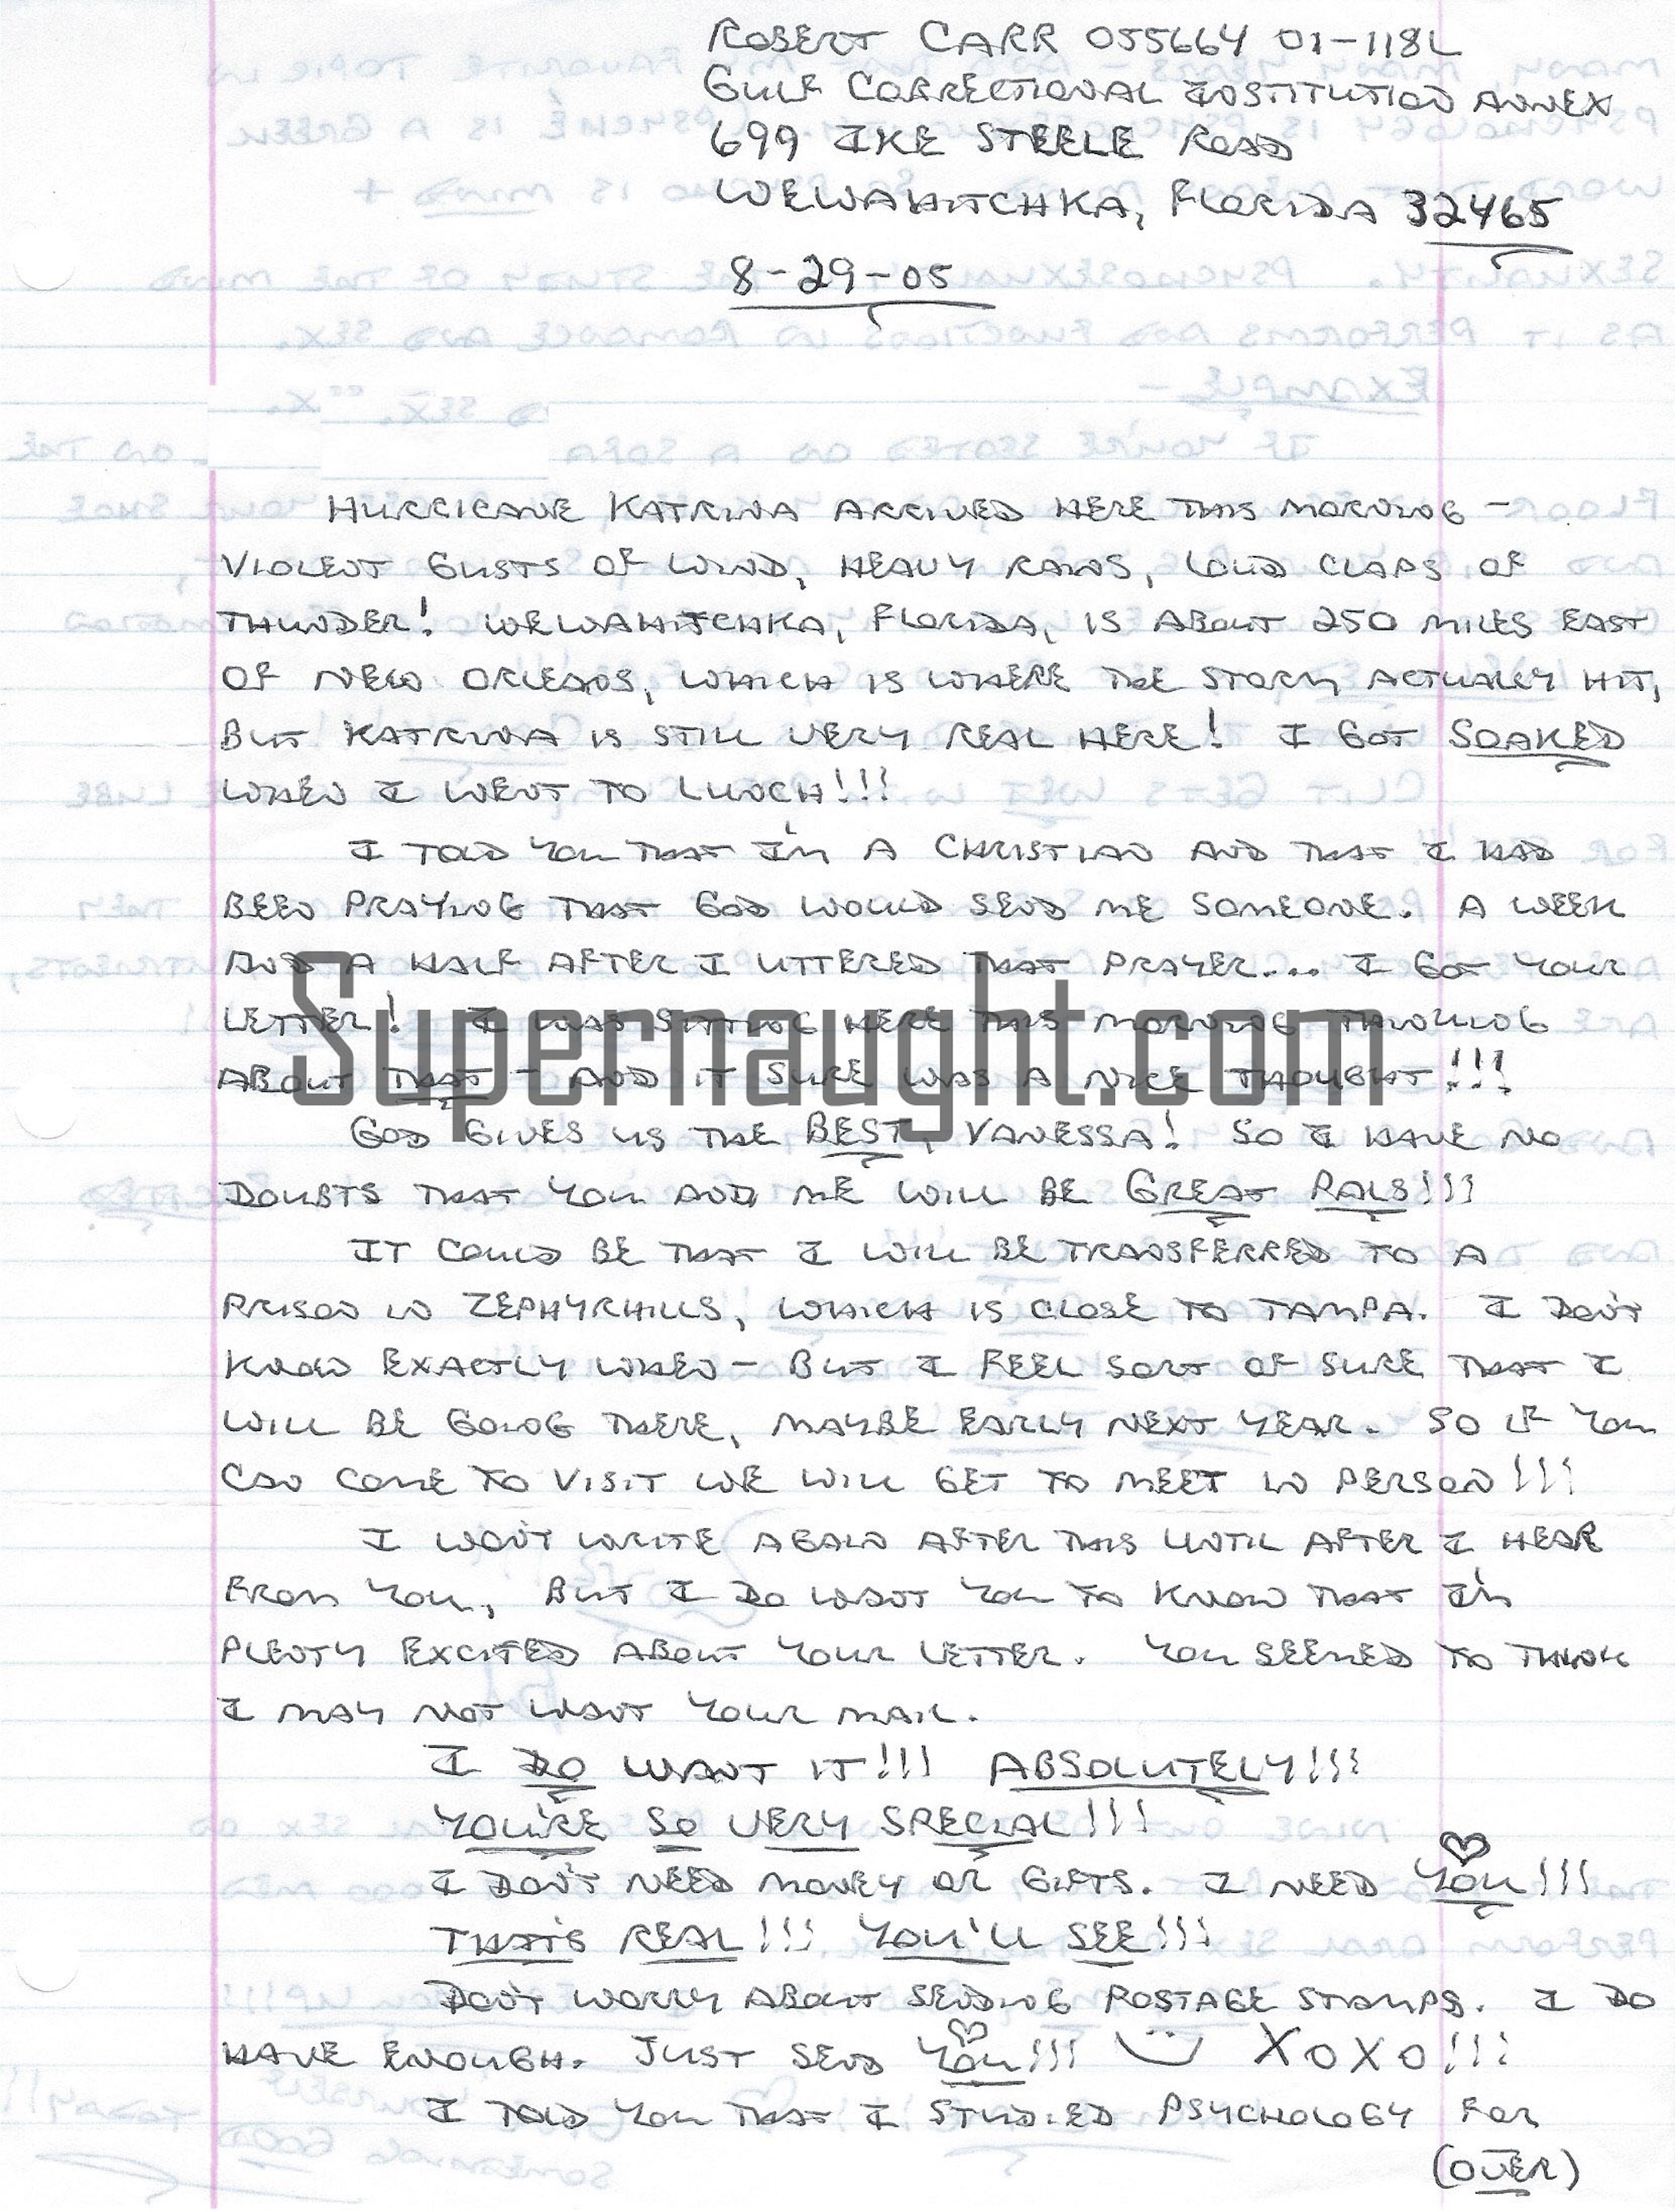 ROBERT CARR 055664 01-118L
GULF CORRECTIONAL INSTITUTION ANNEX
699 IKE STEELE ROAD
WEWAHITCHKA, FLORIDA 32465
8-29-05
HURRICANE KATRINA ARRIVED HERE THIS MORNING -
VIOLENT GUSTS OF WIND, HEAVY RAINS, LOUD CLAPS OF
THUNDER! WEWAHITCHKA, FLORIDA, IS ABOUT 250 MILES EAST
OF NEW ORLEANS, WHICH IS WHERE THE STORM ACTUALLY HIT,
BUT KATRINA IS STILL VERY REAL HERE! I GOT SOAKED
WHEN I WENT TO LUNCH!!!
I TOLD YOU THAT I'M A CHRISTIAN AND THAT I HAD
BEEN PRAYING THAT GOD WOULD SEND ME SOMEONE. A WEEK
AND A HALF AFTER I UTTERED THAT PRAYER.... I GOT YOUR
LETTER! I WAS SITTING HERE THIS MORNING THINKING
ABOUT THAT - AND IT SURE WAS A NICE THOUGHT!!!
Supernaught.com
GOD GIVES US THE BEST, VANESSA! SO I HAVE NO
DOUBTS THAT YOU AND ME WILL BE GREAT PALS!!!
IT COULD BE THAT I WILL BE TRANSFERRED TO A
PRISON IN ZEPHYRHILLS, WHICH IS CLOSE TO TAMPA. I DON'T
KNOW EXACTLY WHEN - BUT I FEEL SORT OF SURE THAT I
WILL BE GOING THERE, MAYBE EARLY NEXT YEAR. SO IF YOU
CAN COME TO VISIT WE WILL GET TO MEET IN PERSON!!!
I WON'T WRITE AGAIN AFTER THIS UNTIL AFTER I HEAR
FROM YOU, BUT I DO WANT YOU TO KNOW THAT I'M
PLENTY EXCITED ABOUT YOUR LETTER. YOU SEEMED TO THINK
I MAY NOT WANT YOUR MAIL.
I DO WANT IT!!! ABSOLUTELY!!!
YOU'RE SO VERY SPECIAL!!!
I DON'T NEED MONEY OR GIFTS. I NEED YOU!!!
THAT'S REAL!!! YOU'LL SEE!!!
DON'T WORRY ABOUT SENDING POSTAGE STAMPS. I DO
HAVE ENOUGH. JUST SEND YOU!!! XOXO!!!
I TOLD YOU THAT I STUDIED PSYCHOLOGY FOR
(OVER)